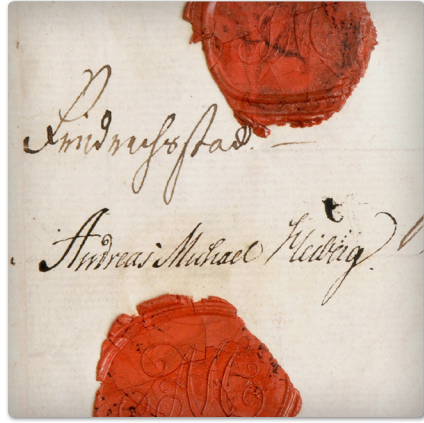 Fridrichsstad.
Andreas Michael Heiberg.